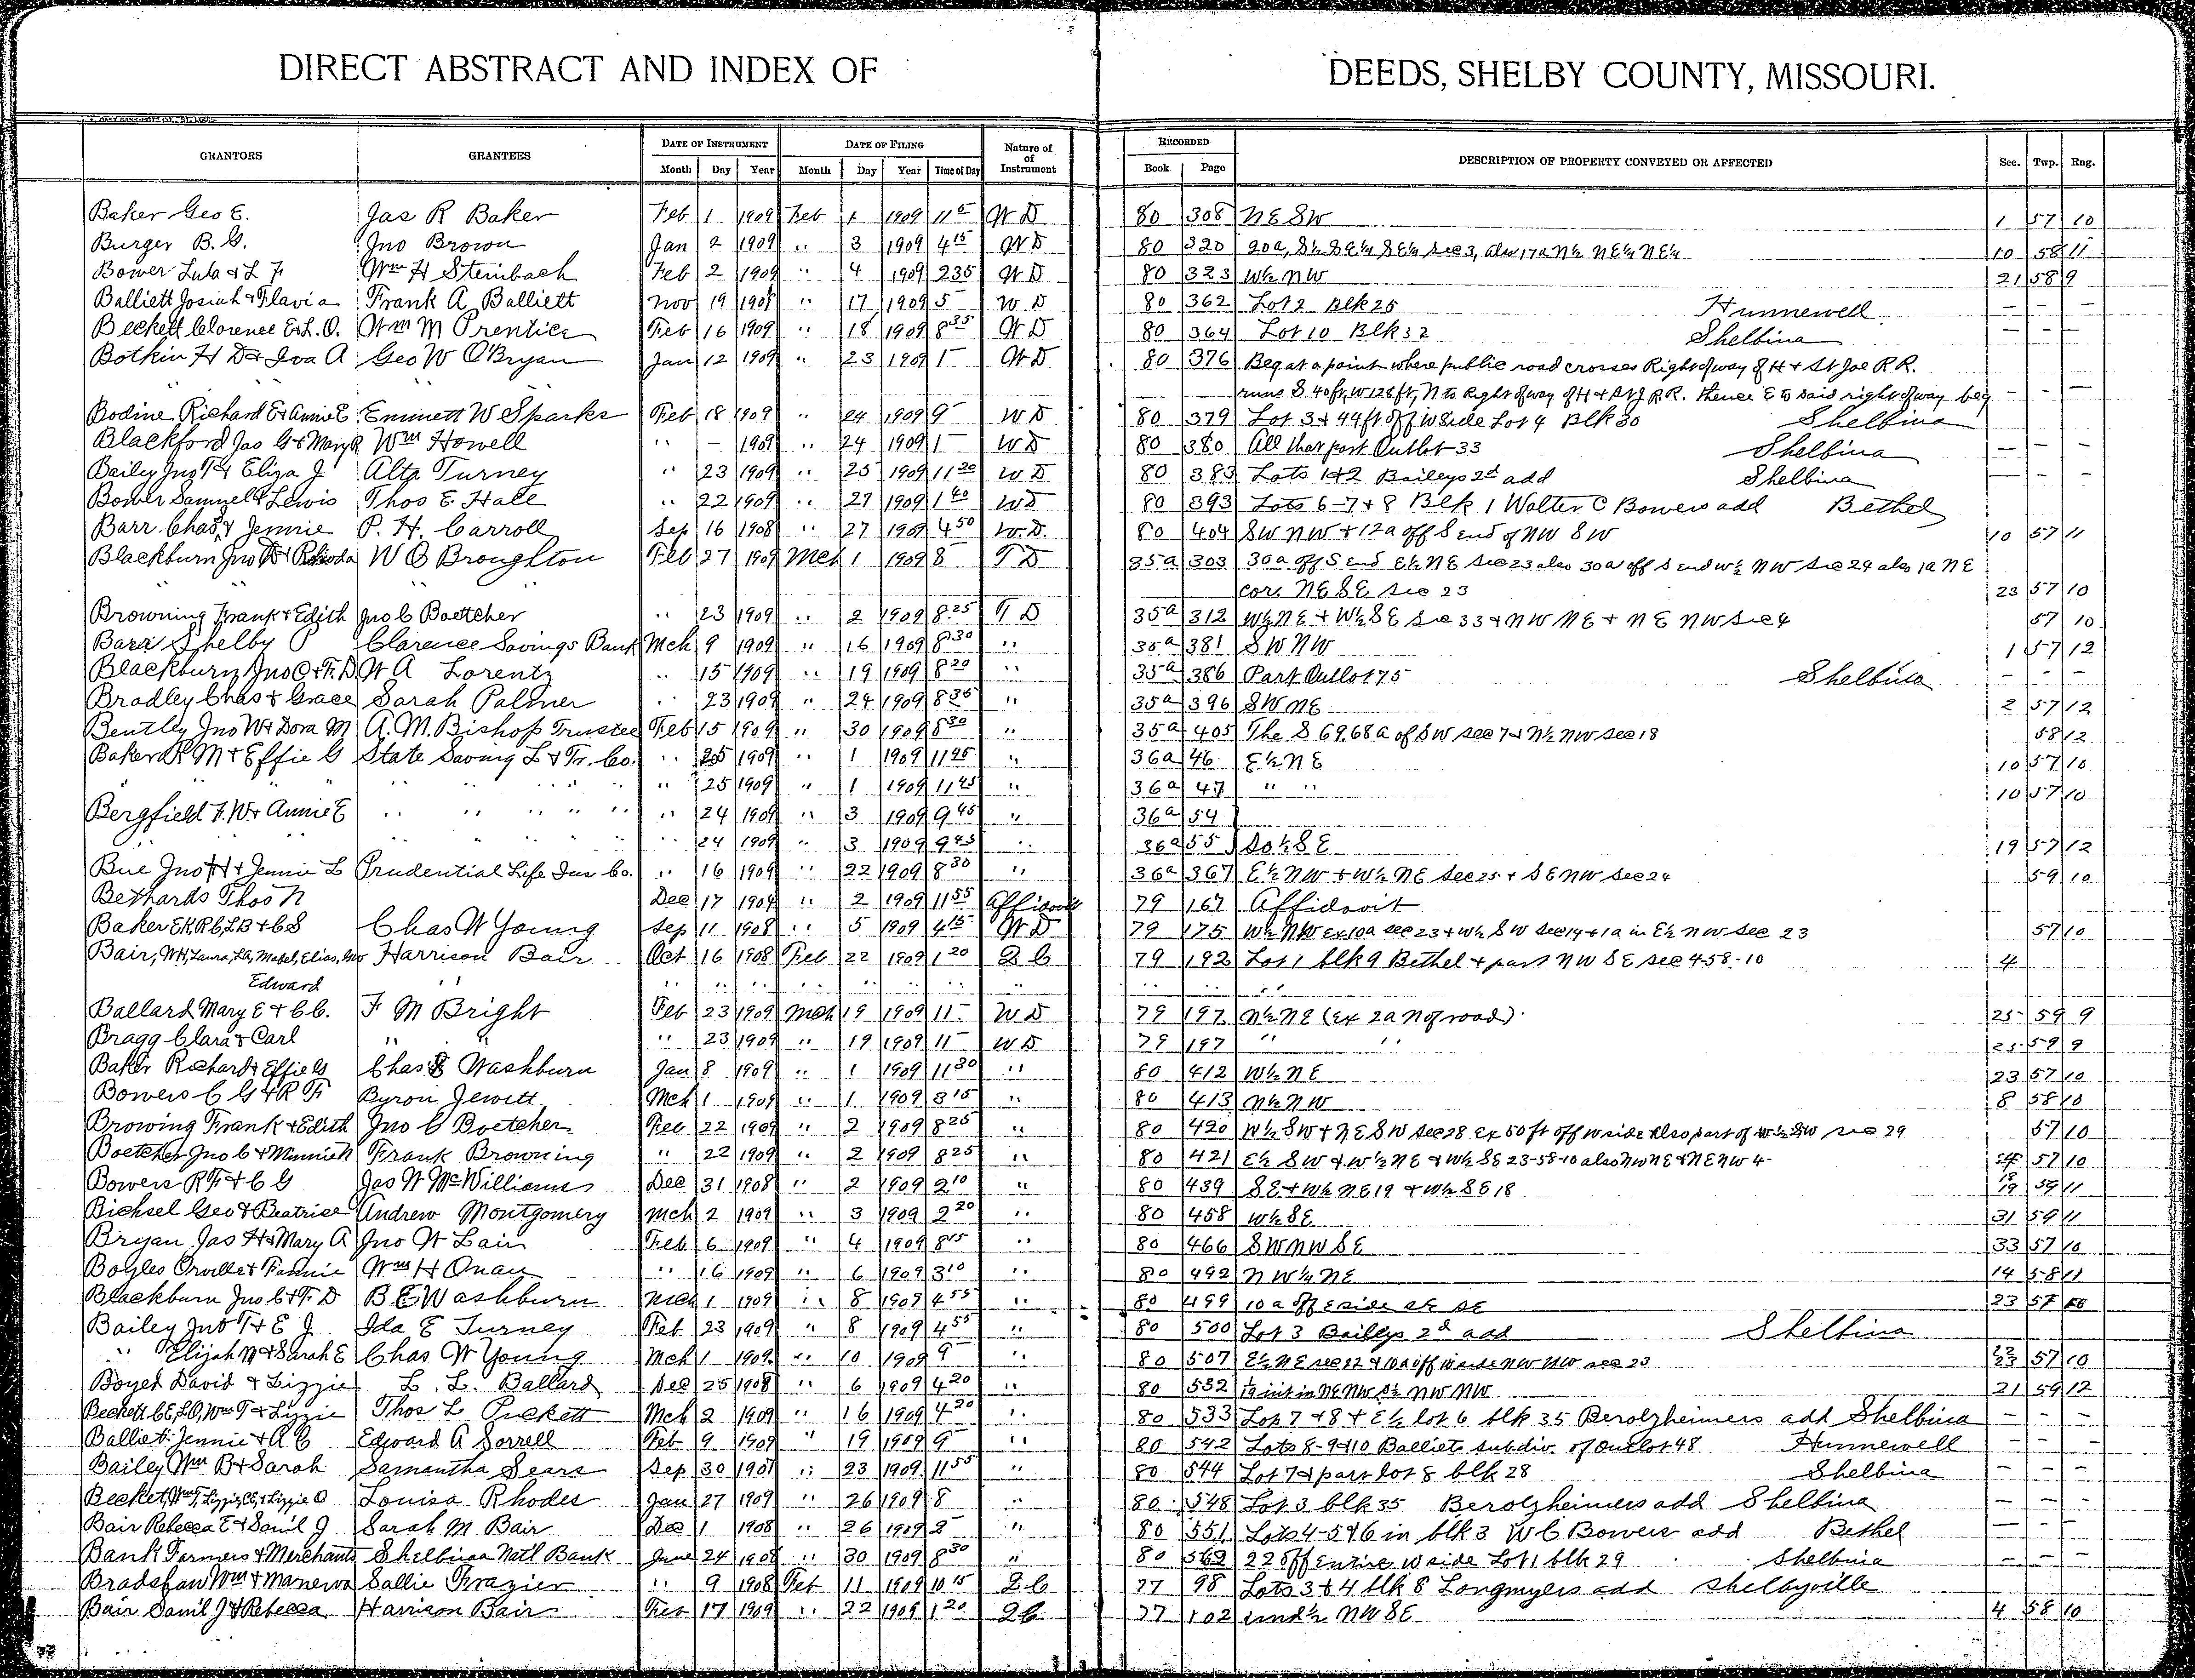 DIRECT ABSTRACT AND INDEX OF DEEDS, SHELBY COUNTY, MISSOURI.
GRANTORS GRANTEES DATE OF INSTRUMENT DATE OF FILING Nature of of Instrument RECORDED DESCRIPTION OF PROPERTY CONVEYED OR AFFECTED Sec. Twp. Rng.
Month Day Year Month Day Year Time of Day Book Page
Baker Geo E. Jas R Baker Feb 1 1909 Feb 1 1909 11 5 W D 80 308 NE SW 1 57 10
Burger B. G. Jno Brown Jan 2 1909 " 3 1909 4 15 W D 80 320 20a, S½ SE¼ SE¼ Sec 3, also 17a N½ NE¼ NE¼ 10 58 11
Bower Lula & L F Wm H Steinbach Feb 2 1909 " 4 1909 2 35 W D 80 323 W½ NW 21 58 9
Balliett Josiah & Flavia Frank A Balliett Nov 19 1908 " 17 1909 5 - W D 80 362 Lot 2 Blk 25 Hunnewell - - -
Beckett Clorence E & L. O. Wm M Prentice Feb 16 1909 " 18 1909 8 35 W D 80 364 Lot 10 Blk 32 Shelbina - - -
Botkin H D & Iva A Geo W O'Bryan Jan 12 1909 " 23 1909 1 - W D 80 376 Beg at a point where public road crosses Right of way of H & St Joe R R.
" " " runs S 40 ft, W 128 ft, N to Right of way of H & St J R R. thence E to said right of way beg - - -
Bodine Richard E & Annie E Emmett W Sparks Feb 18 1909 " 24 1909 9 - W D 80 379 Lot 3 & 44 ft off W side Lot 4 Blk 30 Shelbina - - -
Blackford Jas G & Mary R Wm Howell " - 1909 " 24 1909 1 - W D 80 380 All that part Outlot 33 Shelbina - - -
Bailey Jno T & Eliza J Alta Turney " 23 1909 " 25 1909 11 20 W D 80 383 Lots 1 & 2 Baileys 2d add Shelbina - - -
Bower Samuel & Lewis Thos E Hall " 22 1909 " 27 1909 1 40 W D 80 393 Lots 6-7 & 8 Blk 1 Walter C Bowers add Bethel
Barr Chas & Jennie P. H. Carroll Sep 16 1908 " 27 1909 4 50 W. D. 80 404 SW NW & 12a off S end of NW SW 10 57 11
Blackburn Jno & Rhoda W C Broughton Feb 27 1909 Mch 1 1909 8 T D 35a 303 30a off S end E½ NE Sec 23 also 30a off S end W½ NW Sec 24 also 1a NE
" " " cor. NE SE Sec 23 23 57 10
Browning Frank & Edith Jno C Boettcher " 23 1909 " 2 1909 8 25 T D 35a 312 W½ NE & W½ SE Sec 33 & NW NE & NE NW Sec 4 57 10
Barr Shelby P Clarence Savings Bank Mch 9 1909 " 16 1909 8 30 " 35a 381 SW NW 1 57 12
Blackburn Jno C & F. D. W A Lorentz " 15 1909 " 19 1909 8 20 " 35a 386 Part Outlot 75 Shelbina - - -
Bradley Chas & Grace Sarah Palmer " 23 1909 " 24 1909 8 35 " 35a 396 SW NE 2 57 12
Bentley Jno W & Dora M A. M. Bishop Trustee Feb 15 1909 " 30 1909 8 30 " 35a 405 The S 69.68a of SW Sec 7 & N½ NW Sec 18 58 12
Baker R M & Effie G State Saving L & Tr. Co. " 25 1909 " 1 1909 11 45 " 36a 46 E½ NE 10 57 10
" " " " 25 1909 " 1 1909 11 45 " 36a 47 " " 10 57 10
Bergfield F. W & Annie E " " " " 24 1909 " 3 1909 9 45 " 36a 54
" " " " 24 1909 " 3 1909 9 45 " 36a 55 So½ SE 19 57 12
Bue Jno H & Jennie L Prudential Life Ins Co. " 16 1909 " 22 1909 8 30 " 36a 367 E½ NW & W½ NE Sec 25 & SE NW Sec 24 59 10
Bethards Thos N Dec 17 1904 " 2 1909 11 55 Affidavit 79 167 Affidavit
Baker E K, R C, L B & C S Chas W Young Sep 11 1908 " 5 1909 4 15 W D 79 175 W½ NW Ex 10a Sec 23 & W½ SW Sec 14 & 1a in E½ NW Sec 23 57 10
Bair, W H, Laura, La, Mabel, Elias, Geo Harrison Bair Oct 16 1908 Feb 22 1909 1 20 Q C 79 192 Lot 1 blk 9 Bethel & part NW SE Sec 4 58-10 4
Edward " " " " " " " " " "
Ballard Mary E & C C. F M Bright Feb 23 1909 Mch 19 1909 11 - W D 79 197 N½ NE (Ex 2a N of road) 25 59 9
Bragg Clara & Carl " " " 23 1909 " 19 1909 11 - W D 79 197 " " 25 59 9
Baker Richard & Effie G Chas E Washburn Jan 8 1909 " 1 1909 11 30 " 80 412 W½ NE 23 57 10
Bowers C G & R F Byron Jewett Mch 1 1909 " 1 1909 3 15 " 80 413 N½ NW 8 58 10
Browing Frank & Edith Jno C Boetcher Feb 22 1909 " 2 1909 8 25 " 80 420 W½ SW & NE SW Sec 28 Ex 50 ft off W side Also part of W½ SW Sec 29 57 10
Boetcher Jno C & Minnie N Frank Browning " 22 1909 " 2 1909 8 25 " 80 421 E½ SW & W½ NE & W½ SE 23-58-10 also NW NE & NE NW 4 57 10
Bowers R F & C G Jas W McWilliams Dec 31 1908 " 2 1909 2 10 " 80 439 SE & W½ NE 19 & W½ SE 18 18 19 59 11
Bichsel Geo & Beatrice Andrew Montgomery Mch 2 1909 " 3 1909 2 20 " 80 458 W½ SE 31 59 11
Bryan Jas H & Mary A Jno W Lair Feb 6 1909 " 4 1909 8 15 " 80 466 SW NW SE 33 57 10
Boyles Orville & Fannie Wm H Onan " 16 1909 " 6 1909 3 10 " 80 492 NW¼ NE 14 58 11
Blackburn Jno C & F. D B E Washburn Mch 1 1909 " 8 1909 4 55 " 80 499 10a off E side SE SE 23 57 10
Bailey Jno T & E J. Ida E Turney Feb 23 1909 " 8 1909 4 55 " 80 500 Lot 3 Baileys 2d add Shelbina
" Elijah N & Sarah E Chas W Young Mch 1 1909 " 10 1909 9 - " 80 507 E½ NE Sec 22 & 10a off W side NW NW Sec 23 22 23 57 10
Boyed David & Lizzie L. L. Ballard Dec 25 1908 " 6 1909 4 20 " 80 532 int in NE NW S½ NW NW 21 59 12
Beckett C E, L O, Wm T & Lizzie Thos L Puckett Mch 2 1909 " 16 1909 4 20 " 80 533 Lot 7 & 8 & E½ lot 6 blk 35 Berolzheimers add Shelbina - - -
Balliet Jennie & A C Edward A Sorrell Feb 9 1909 " 19 1909 9 - " 80 542 Lots 8-9 & 10 Balliets subdiv. of Outlot 48 Hunnewell - - -
Bailey Wm B & Sarah Samantha Sears Sep 30 1908 " 23 1909 11 55 " 80 544 Lot 7 & part lot 8 blk 28 Shelbina - - -
Becket, Wm T, Lizzie, C E, & Lizzie O Louisa Rhodes Jan 27 1909 " 26 1909 8 " 80 548 Lot 3 blk 35 Berolzheimers add Shelbina - - -
Bair Rebecca E & Samil J Sarah M Bair Dec 1 1908 " 26 1909 2 - " 80 551 Lots 4-5 & 6 in blk 3 W C Bowers add Bethel - - -
Bank Farmers & Merchants Shelbina Natl Bank June 24 1908 " 30 1909 8 30 " 80 562 22 off Entire W side Lot 1 blk 29 Shelbina - - -
Bradshaw Wm & Manerva Sallie Frazier " 9 1908 Feb 11 1909 10 15 Q C 77 98 Lots 3 & 4 blk 8 Longmyers add Shelbyville
Bair Samil J & Rebecca Harrison Bair Feb 17 1909 " 22 1909 1 20 Q C 77 102 und ½ NW SE 4 58 10